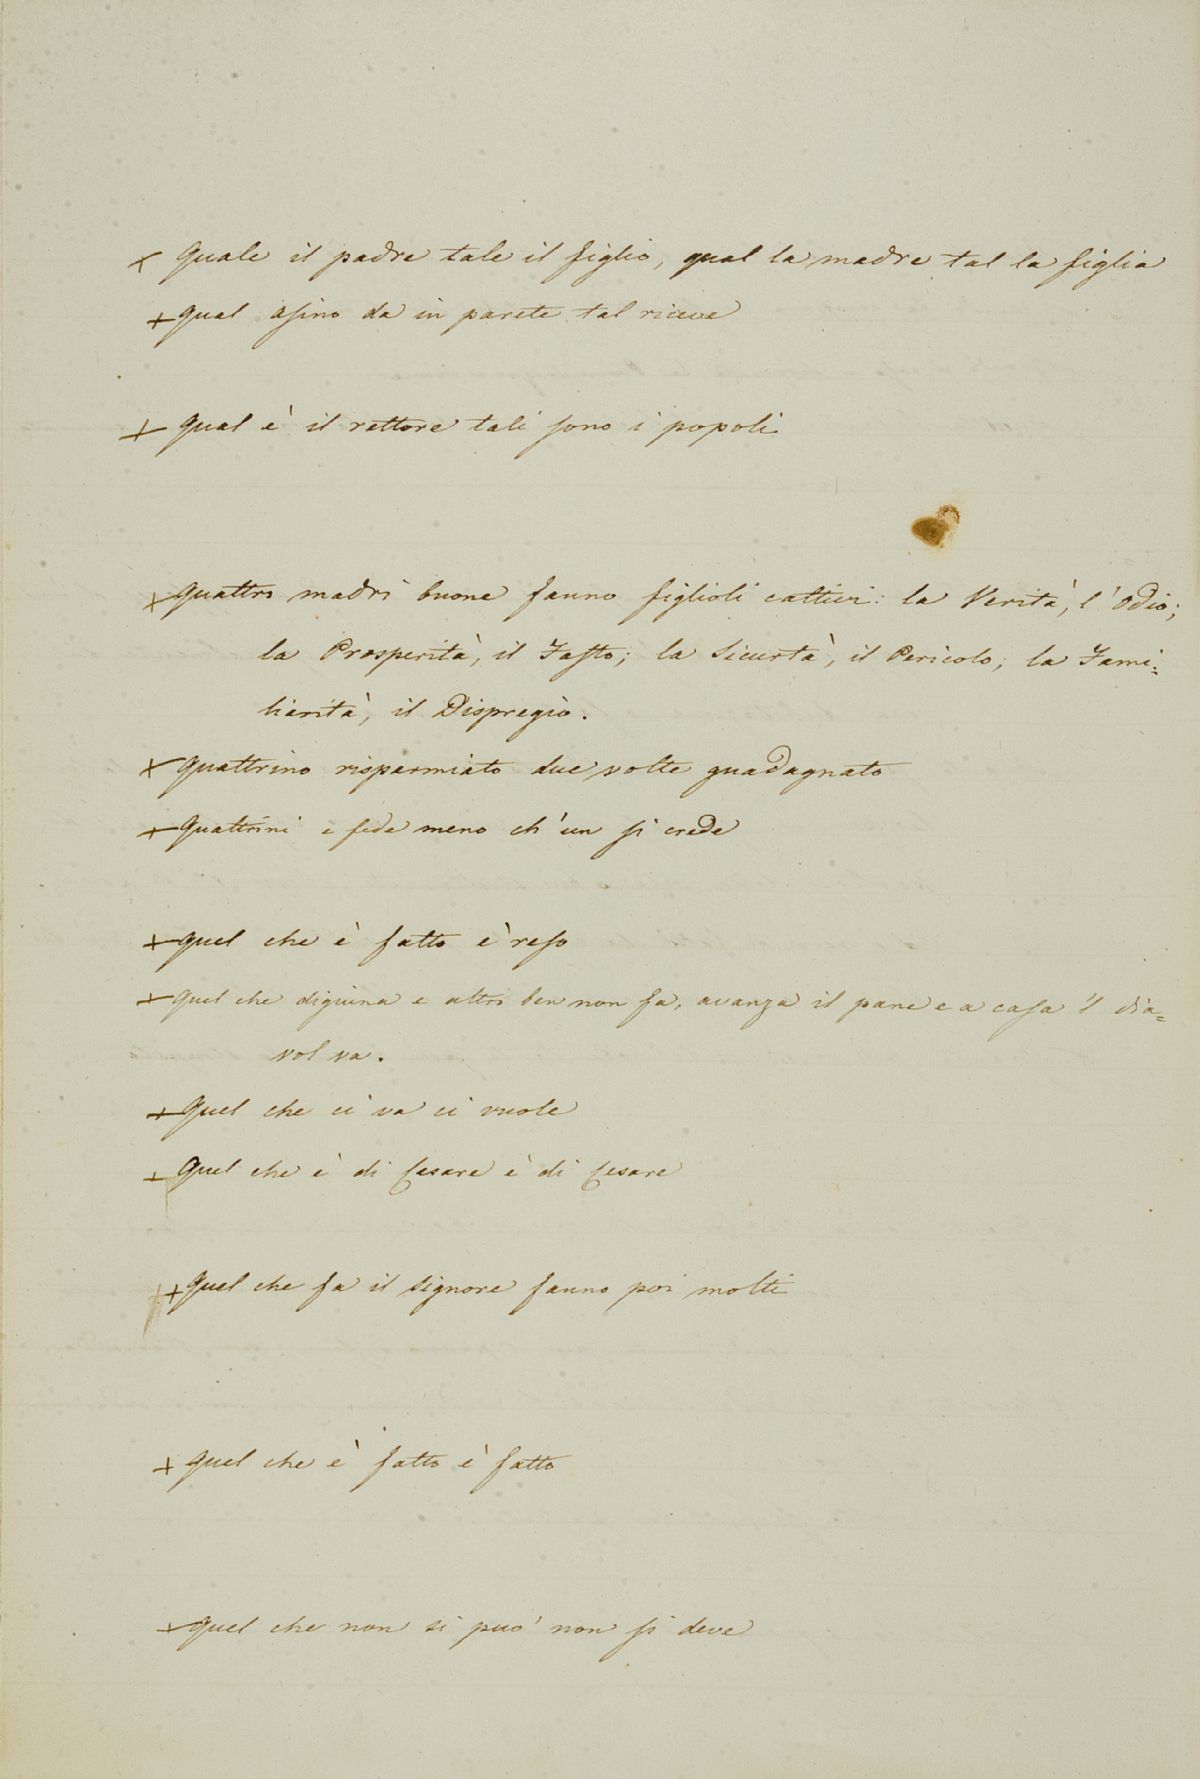 + Quale il padre tale il figlio, qual la madre tal la figlia
+ Qual asino da in parete tal riceve
+ Qual è il rettore tali sono i popoli
+ Quattro madri buone fanno figlioli cattivi: la Verità, l'Odio;
la Prosperità, il Fasto; la Sicurtà, il Pericolo; la Fami=
liarità, il Dispregio.
+ Quattrino risparmiato due volte guadagnato
+ Quattrini e fede meno ch'un si crede
+ Quel che è fatto è reso
+ Quel che digiuna e altro ben non fa, avanza il pane e a casa 'l dia=
vol va.
+ Quel che ci va ci vuole
+ Quel che è di Cesare è di Cesare
+ Quel che fa il Signore fanno poi molti
+ Quel che è fatto è fatto
+ Quel che non si può non si deve